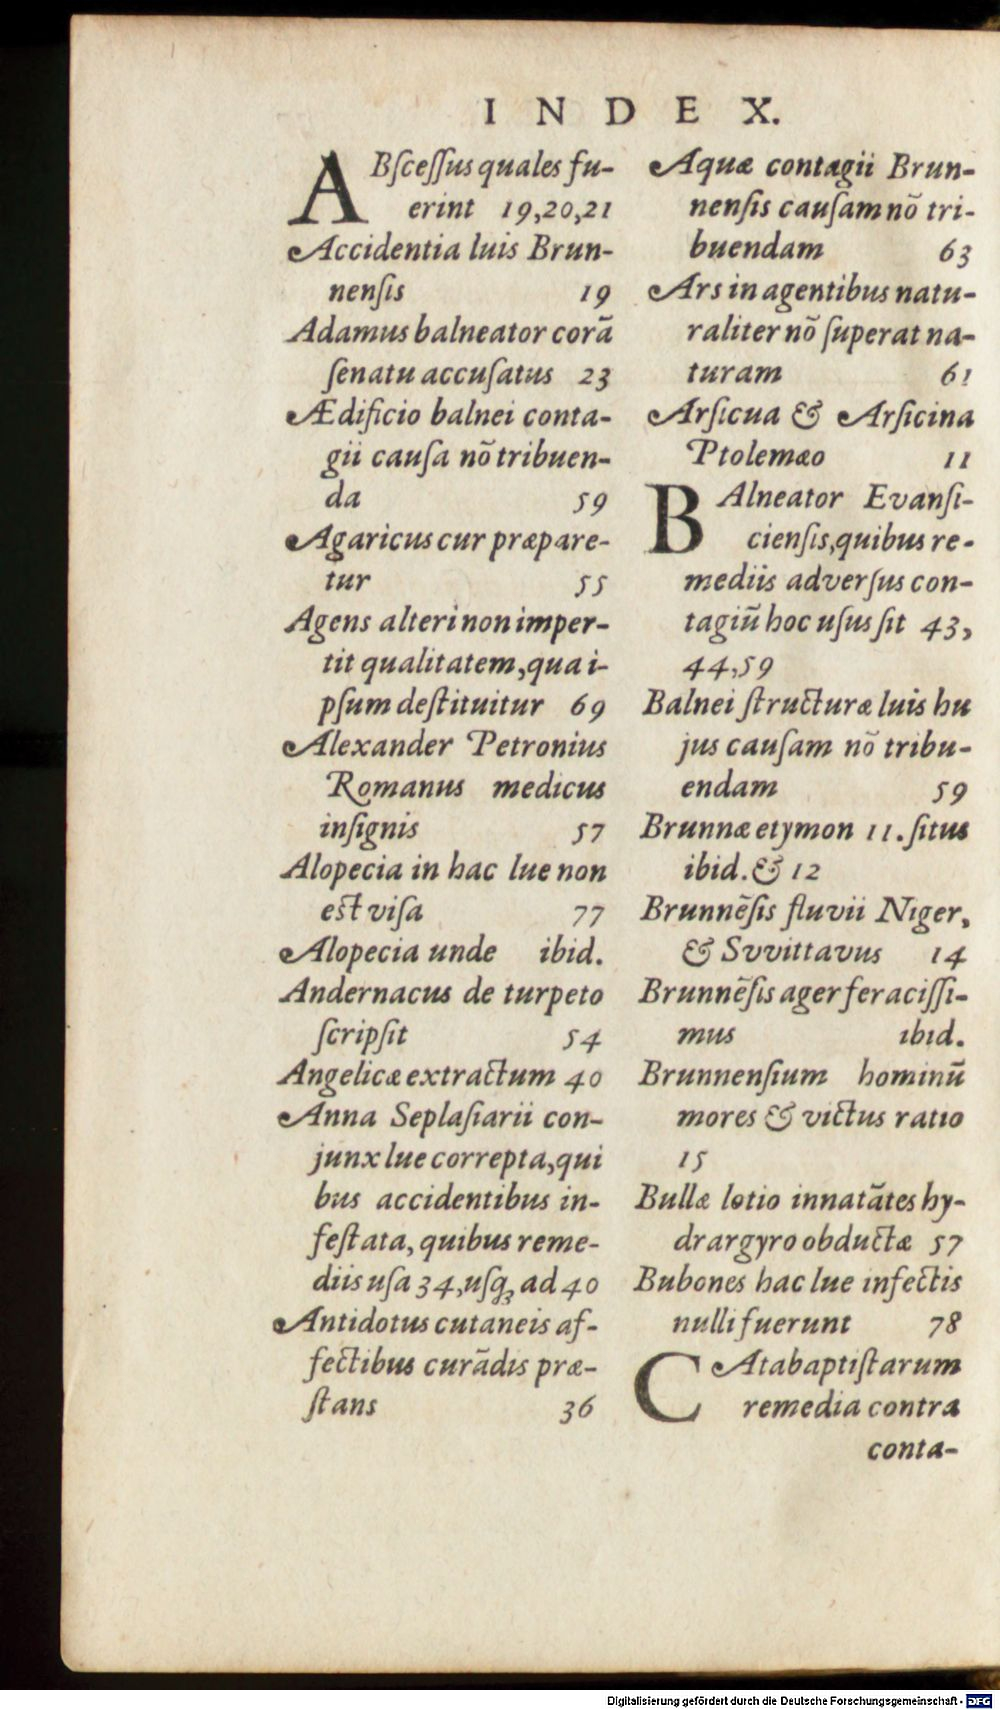 INDEX.
ABſceſſus quales fu-
erint 19,20,21
Accidentia luis Brun-
nenſis 19
Adamus balneator corã
ſenatu accuſatus 23
Ædificio balnei conta-
gii cauſa nõ tribuen-
da 59
Agaricus cur præpare-
tur 55
Agens alteri non imper-
tit qualitatem, qua i-
pſum deſtituitur 69
Alexander Petronius
Romanus medicus
inſignis 57
Alopecia in hac lue non
eſt viſa 77
Alopecia unde ibid.
Andernacus de turpeto
ſcripſit 54
Angelicæ extractum 40
Anna Seplaſiarii con-
junx lue correpta, qui
bus accidentibus in-
feſtata, quibus reme-
diis uſa 34, uſqꝫ ad 40
Antidotus cutaneis af-
fectibus curãdis præ-
ſtans 36
Aquæ contagii Brun-
nenſis cauſam nõ tri-
buendam 63
Ars in agentibus natu-
raliter nõ ſuperat na-
turam 61
Arſicua & Arſicina
Ptolemæo 11
BAlneator Evanſi-
cienſis, quibus re-
mediis adverſus con-
tagiũ hoc uſus ſit 43,
44,59
Balnei ſtructuræ luis hu
jus cauſam nõ tribu-
endam 59
Brunnæ etymon 11. ſitus
ibid. & 12
Brunnẽſis fluvii Niger,
& Svvittavus 14
Brunnẽſis ager feraciſſi-
mus ibid.
Brunnenſium hominũ
mores & victus ratio
15
Bullæ lotio innatãtes hy-
drargyro obductæ 57
Bubones hac lue infectis
nulli fuerunt 78
CAtabaptiſtarum
remedia contra
conta-
Digitalisierung gefördert durch die Deutsche Forschungsgemeinschaft - DFG